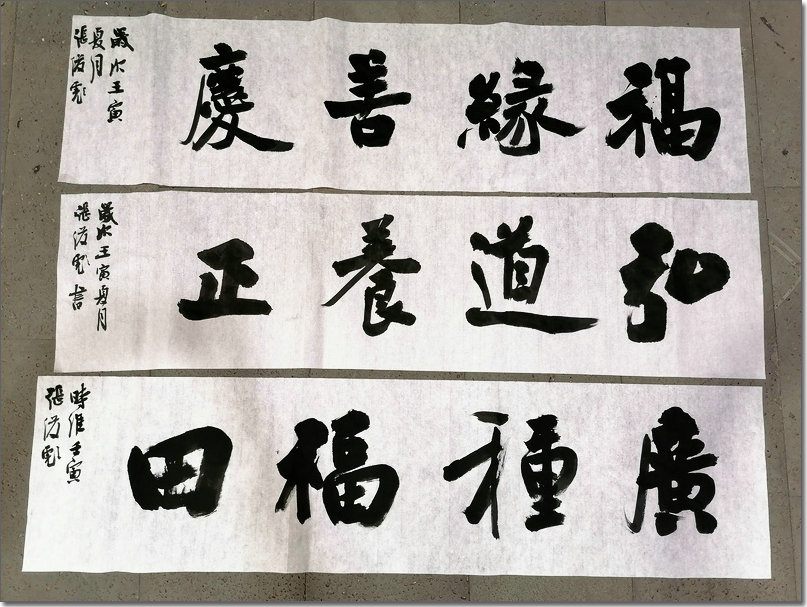 福緣善慶
歲次壬寅
夏月
張
弘道養正
歲次壬寅夏月
張書
廣種福田
時維壬寅
張